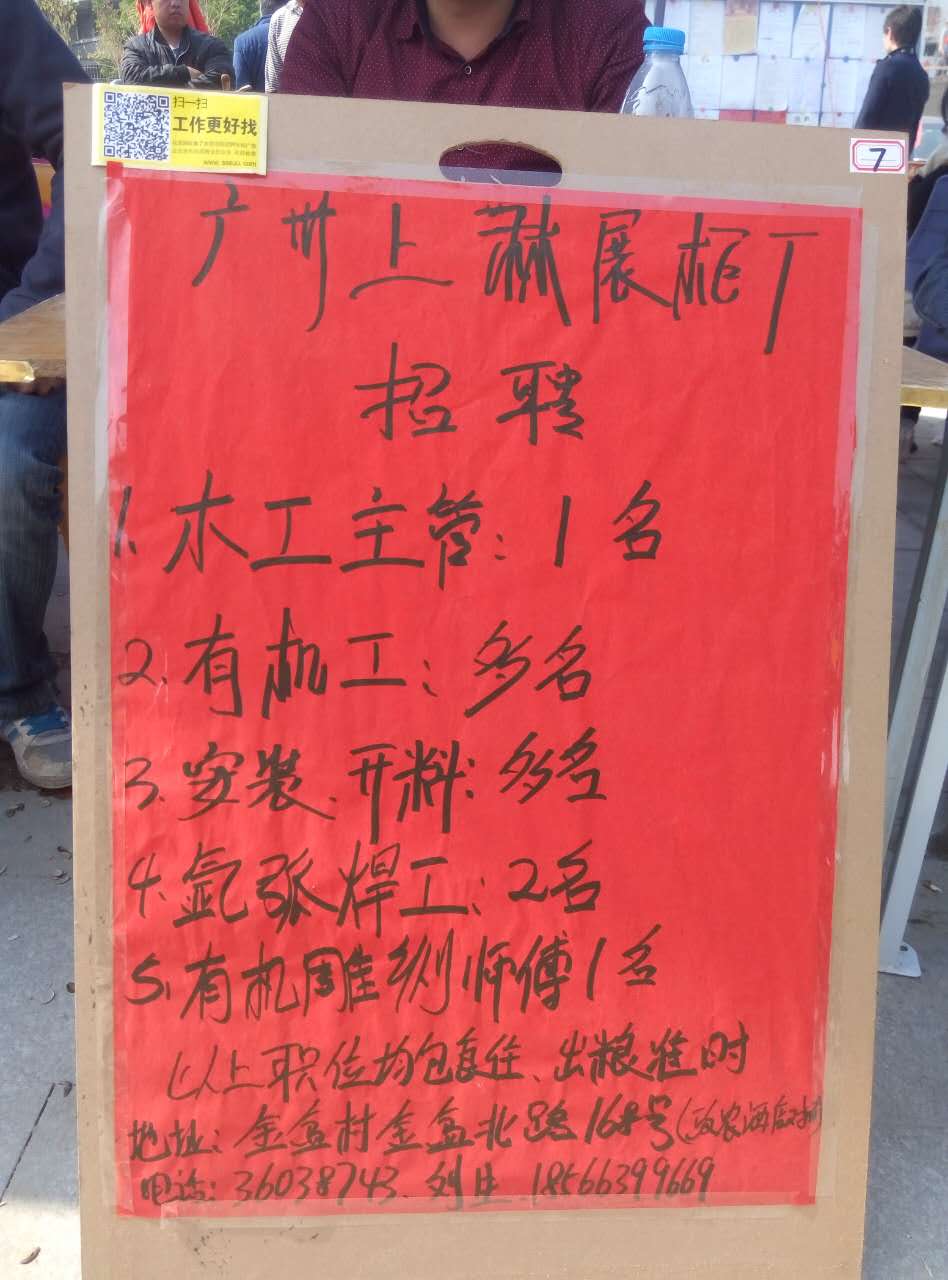 扫一扫
工作更好找
7
广州上 展柜厂
招聘
1.木工主管:1名
2.有机工:多名
3.安装、开料:多名
4.氩弧焊工:2名
5.有机雕刻师傅1名
以上职位均包食住、出粮准时
地址:金盆村金盆北路168号(酒店对面
电话:36038743、刘生 18566399669